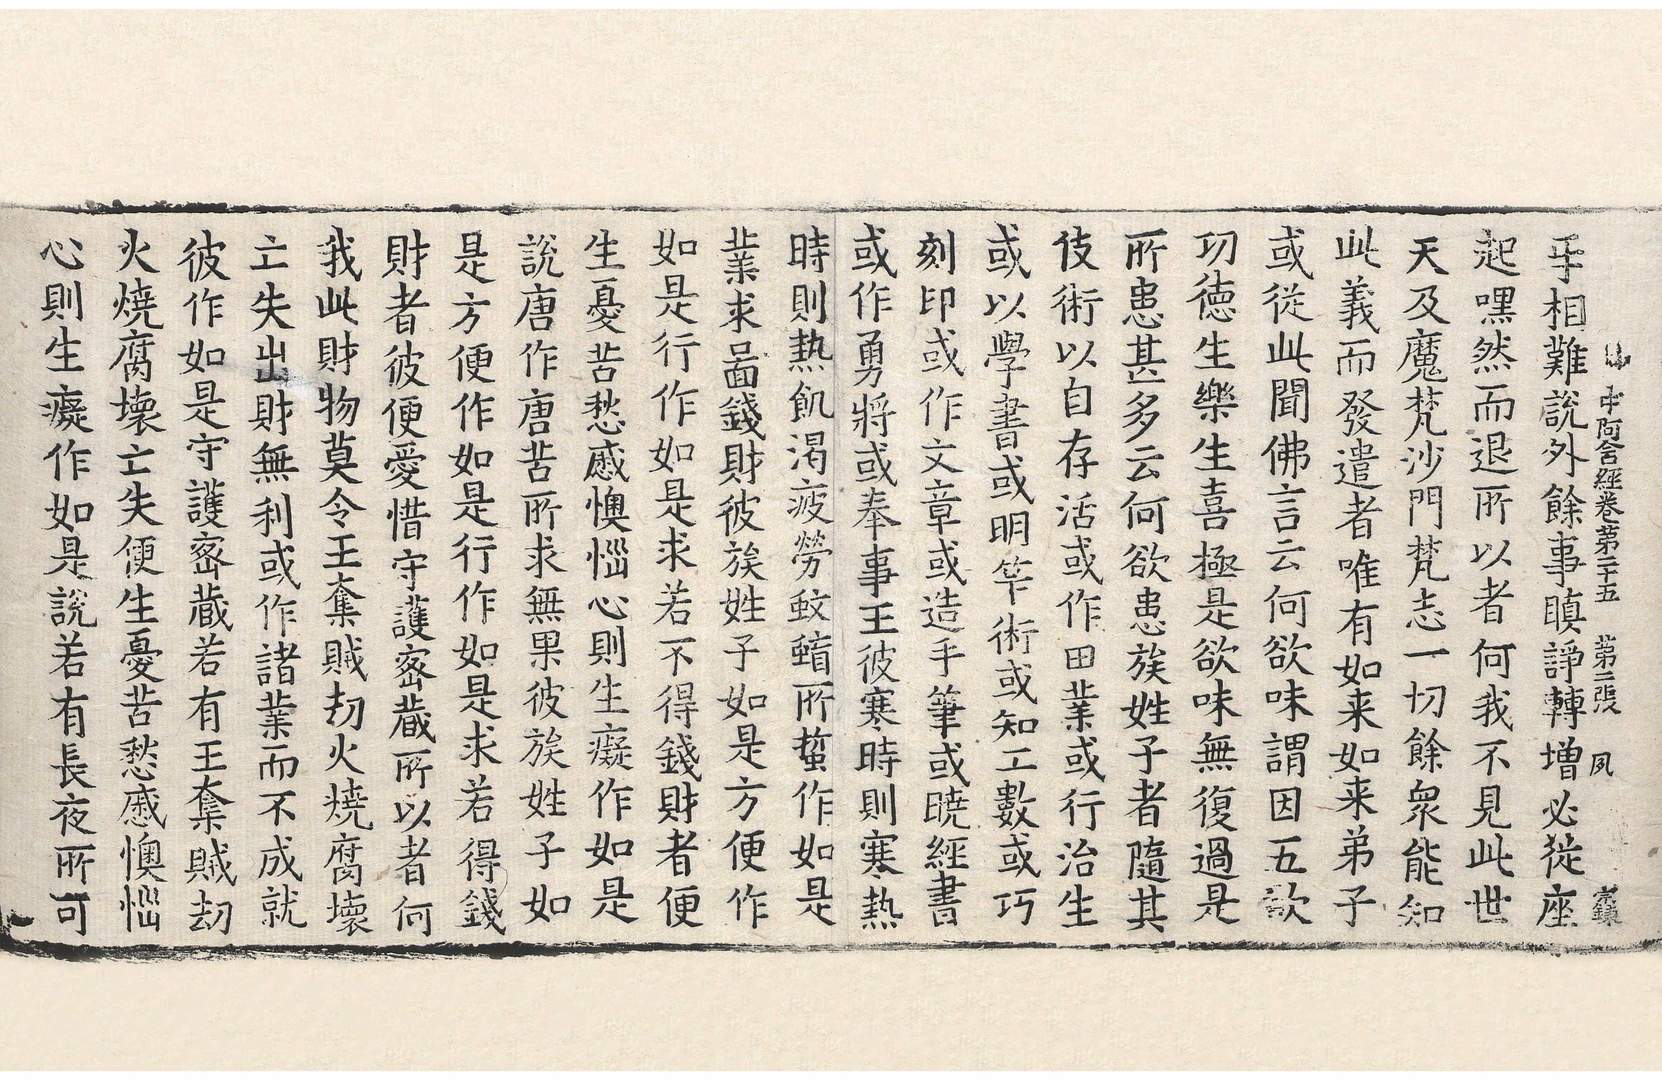 中阿含經卷第二十五 第二張 夙
乎相難說外餘事瞋諍轉增必從座
起嘿然而退所以者何我不見此世
天及魔梵沙門梵志一切餘衆能知
此義而發遣者唯有如来如来弟子
或從此聞佛言云何欲味謂因五欲
功德生樂生喜極是欲味無復過是
所患甚多云何欲患族姓子者隨其
伎術以自存活或作田業或行治生
或以學書或明筭術或知工數或巧
刻印或作文章或造手筆或曉經書
或作勇將或奉事王彼寒時則寒熱
時則熱飢渴疲勞蚊䖟所蜇作如是
業求啚錢財彼族姓子如是方便作
如是行作如是求若不得錢財者便
生憂苦愁慼懊惱心則生癡作如是
說唐作唐苦所求無果彼族姓子如
是方便作如是行作如是求若得錢
財者彼便愛惜守護密藏所以者何
我此財物莫令王奪賊刧火燒腐壞
亡失出財無利或作諸業而不成就
彼作如是守護密藏若有王奪賊刧
火燒腐壞亡失便生憂苦愁慼懊惱
心則生癡作如是說若有長夜所可